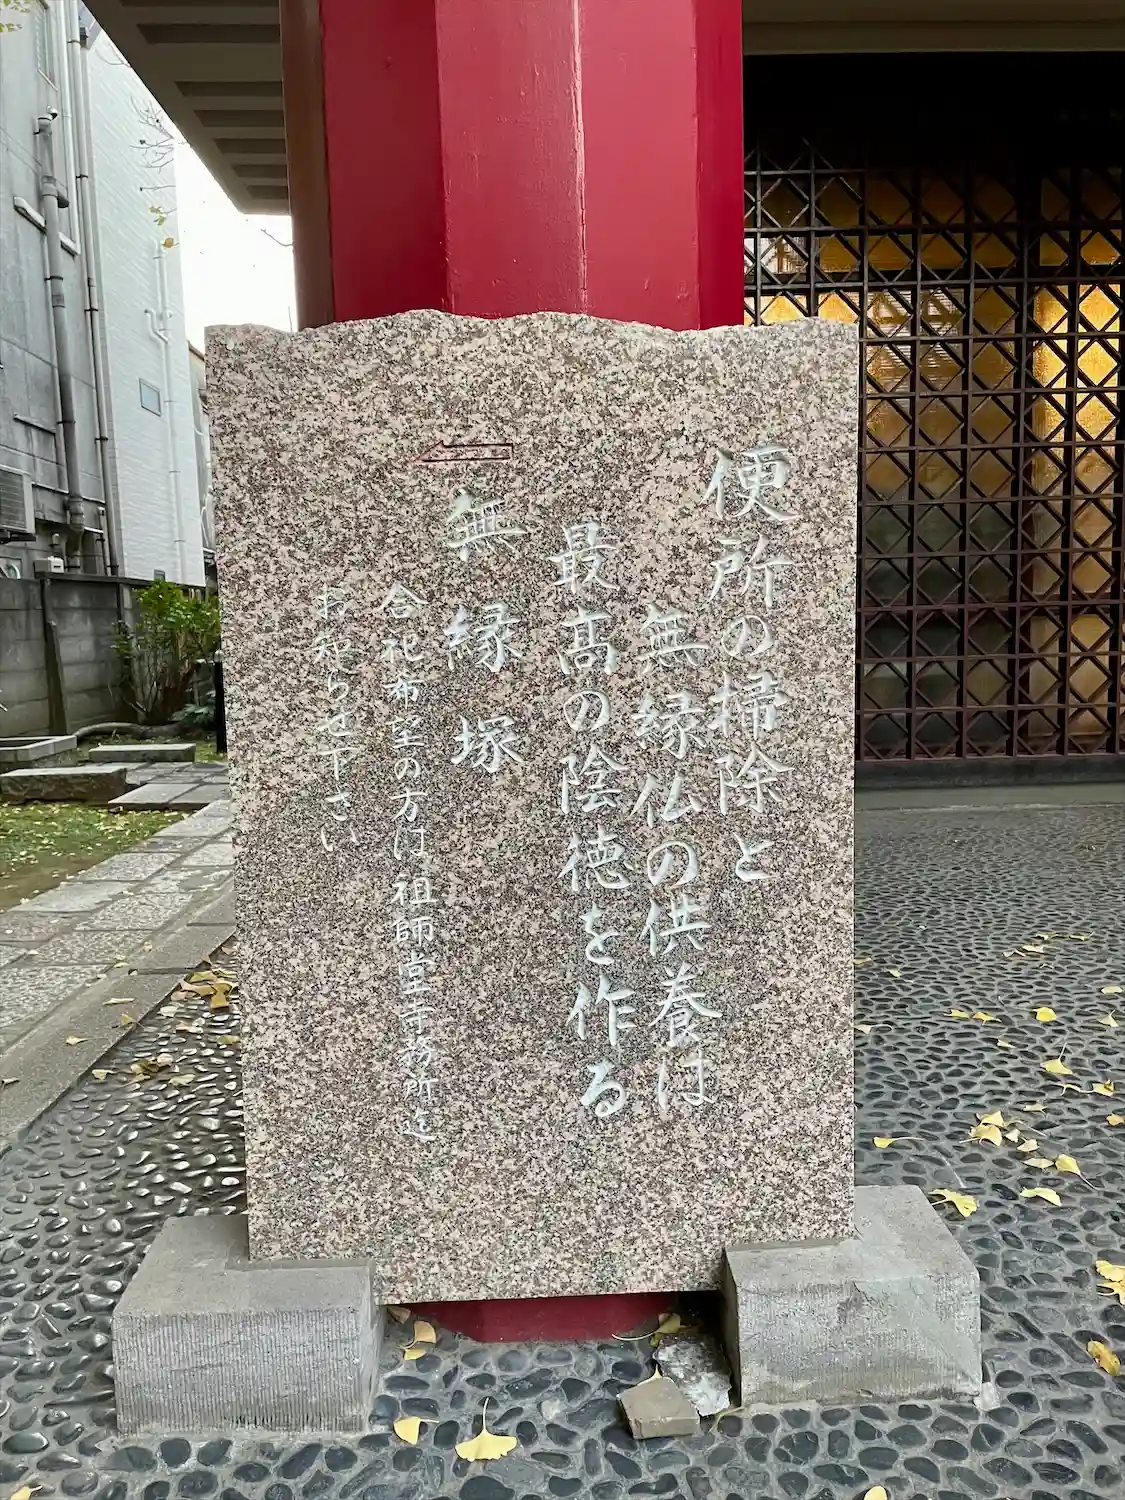 便所の掃除と
無縁仏の供養は
最高の陰徳を作る
無縁塚
合祀希望の方は祖師堂寺務所迄
お知らせ下さい